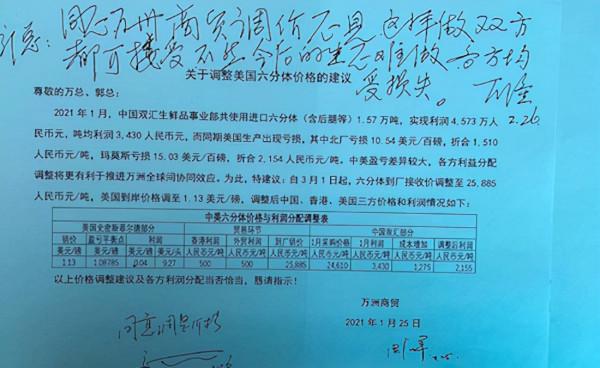 同意万州商贸调价意见这样做双方
都可接受不然今后的生意难做各方均
受损失。
2.26.
关于调整美国六分体价格的建议
尊敬的万总、郭总：
2021年1月，中国双汇生鲜品事业部共使用进口六分体（含后腿等）1.57万吨，实现利润4,573万人
民币元，吨均利润3,430人民币元，而同期美国生产出现亏损，其中北厂亏损10.54美元/百磅，折合1,510
人民币元/吨，玛莫斯亏损15.03美元/百磅，折合2,154人民币元/吨。中美盈亏差异较大，各方利益分配
调整将更有利于推进万洲全球间协同效应。为此，特建议：自3月1日起，六分体到厂接收价调整至25,885
人民币元/吨，美国到岸价格调至1.13美元/磅，调整后中国、香港、美国三方价格和利润情况如下：
中美六分体价格与利润分配调整表
美国史密斯菲尔德部分 贸易环节 中国双汇部分
销价 盈亏平衡点 利润 香港利润 外贸利润 到厂销价 1月采购价格 1月利润 成本增加 调整后利润
美元/磅 美元/磅 美元/磅 美元/头 人民币元/吨 人民币元/吨 人民币元/吨 人民币元/吨 人民币元/吨 人民币元/吨 人民币元/吨
1.13 1.08785 0.04 9.27 500 500 25,885 24,610 3,430 1,275 2,155
以上价格调整建议及各方利润分配当否恰当，恳请指示！
万洲商贸
2021年1月25日
同意调整价格